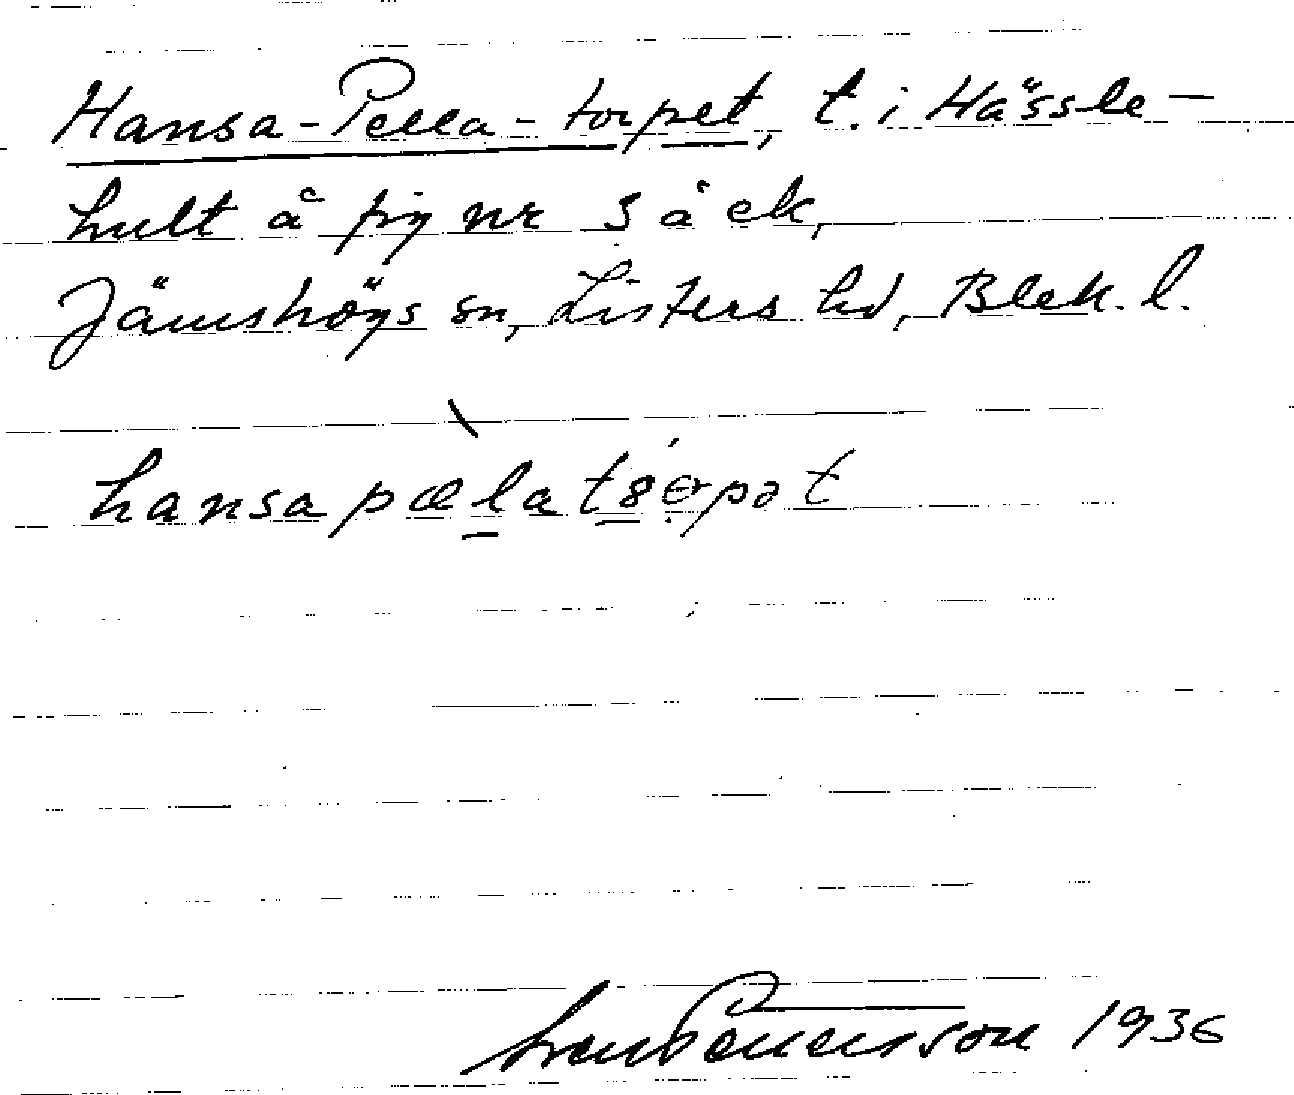 Hansa-Pella-torpet, t. i Hässle-
hult å fig nr 5 å ek,
Jämshögs sn, Listers hd, Blek. l.
hansapælat8rpət
1936